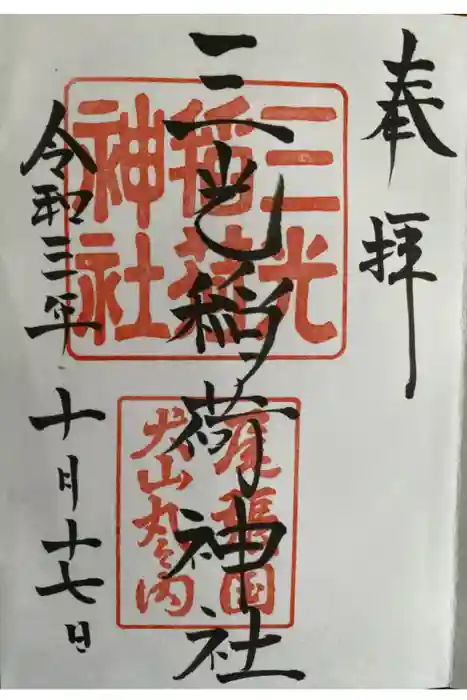 奉拝
三光稲荷神社
三光
稲荷
神社
尾張国
犬山丸之内
令和三年十月十七日